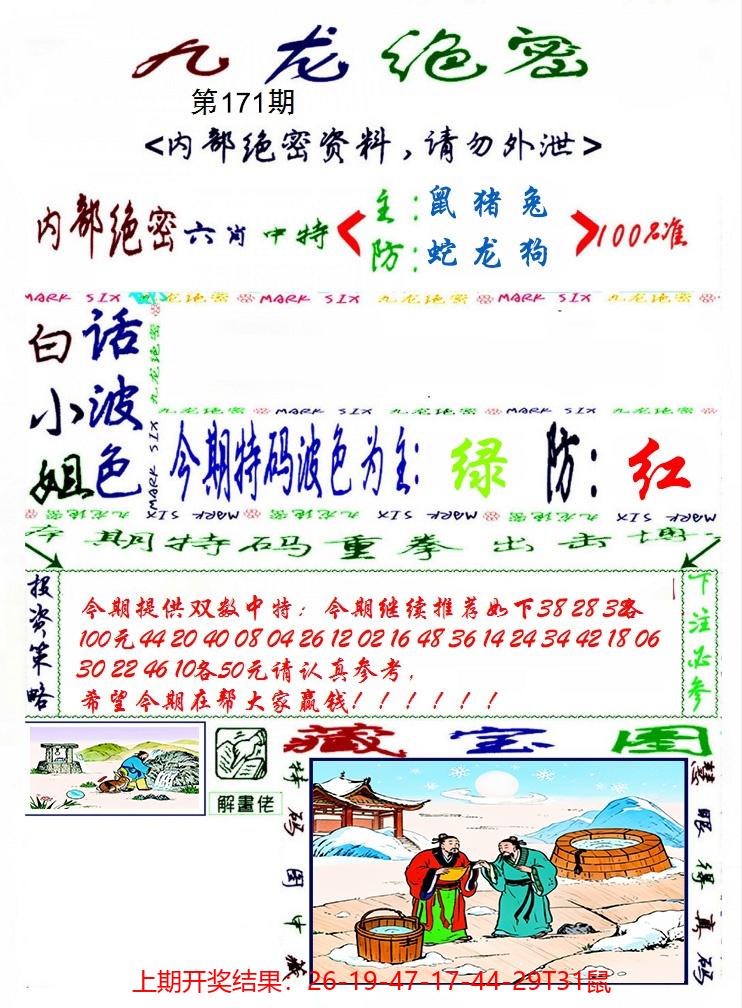 九龙绝密
第171期
<内部绝密资料，请勿外泄>
内部绝密六肖中特
主：鼠猪兔
防：蛇龙狗
100%准
MARK SIX 九龙绝密 MARK SIX 九龙绝密 MARK SIX 九龙绝密
白小姐
话波色
九龙绝密 MARK SIX
九龙绝密 MARK SIX 九龙绝密 MARK SIX 九龙绝密
今期特码波色为主：绿 防：红
九龙绝密 MARK SIX 九龙绝密 MARK SIX 九龙绝密 MARK SIX
期特码重拳出击
投资策略
今期提供双数中特：今期继续推荐如下38 28 32各
100元44 20 40 08 04 26 12 02 16 48 36 14 24 34 42 18 06
30 22 46 10各50元请认真参考，
希望今期在帮大家赢钱！！！！！！
下注必参
解畫佬
藏宝图
特码图中藏
慧眼得真码
上期开奖结果：26-19-47-17-44-29T31鼠